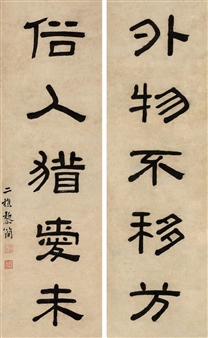 外物不移方
俗人猶愛未
二樵黎簡